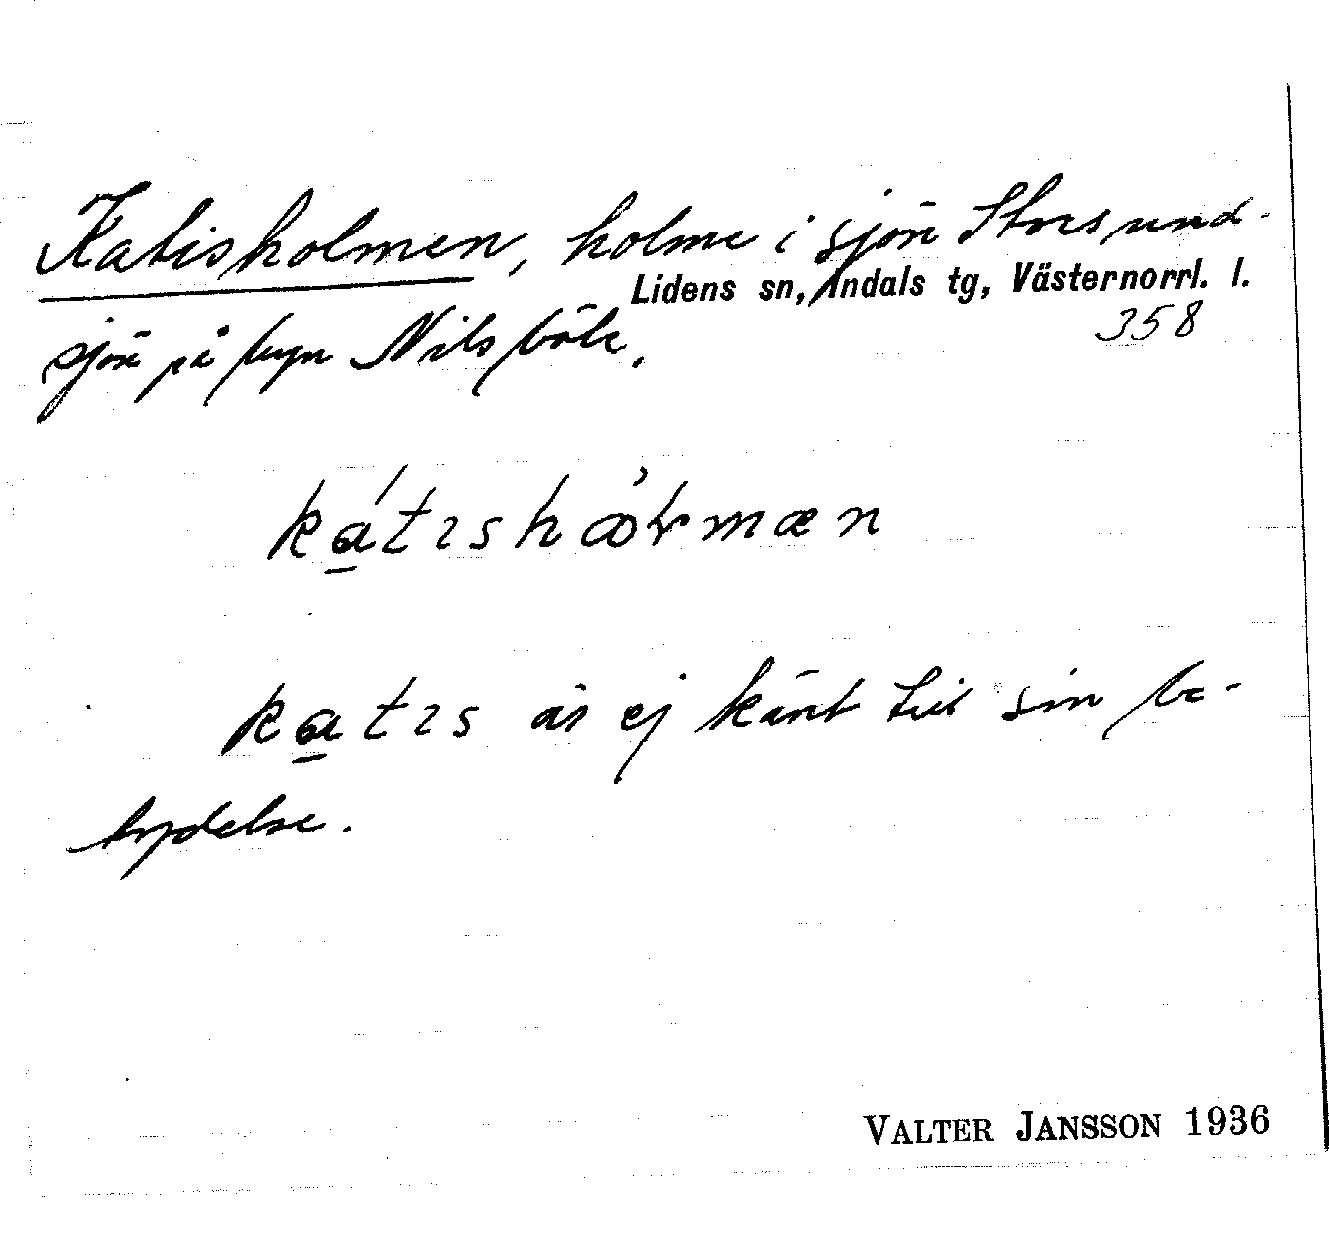 Katisholmen, holme i sjön Storsund-
Lidens sn, Indals tg, Västernorrl. l.
358
sjön på byn Nilsböle.
katis är ej känt till sin be-
tydelse.
VALTER JANSSON 1936